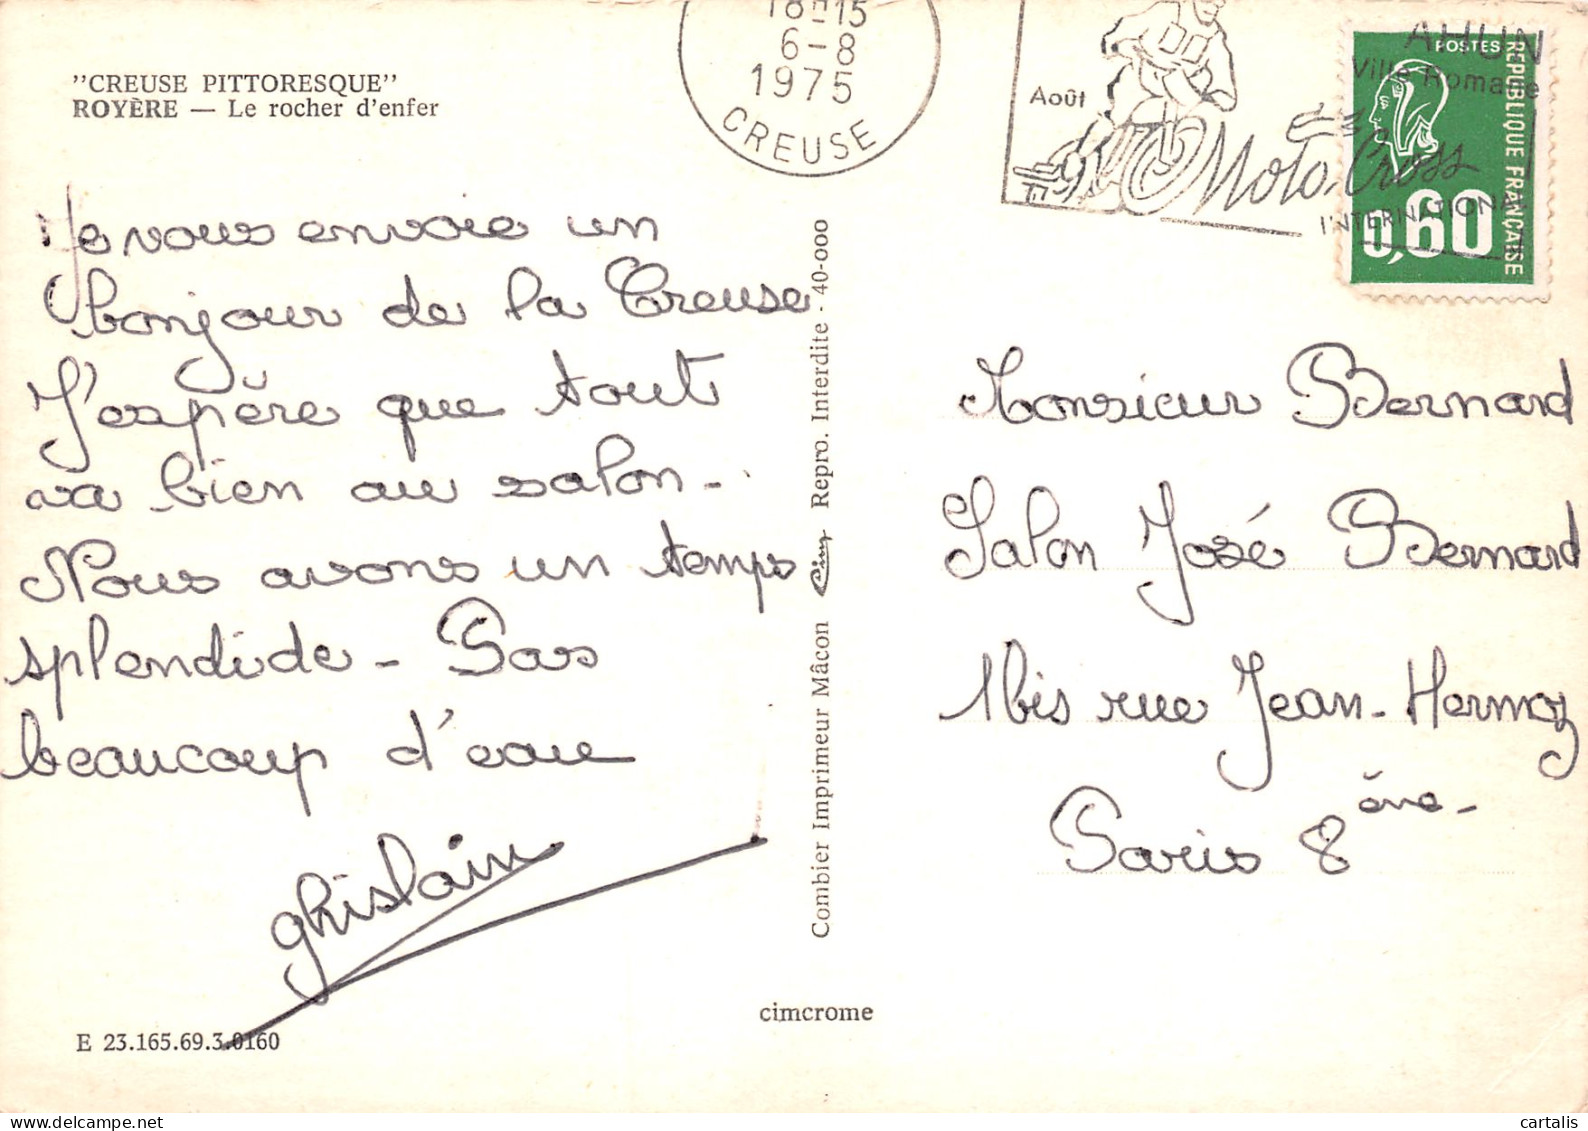 "CREUSE PITTORESQUE"
ROYÈRE — Le rocher d'enfer
Je vous envoie un
bonjour de la Creuse
J'espère que tout
va bien au salon-
Nous avons un temps
splendide - Pas
beaucoup d'eau
ghislain
E 23.165.69.3.0160
Combier Imprimeur Mâcon Cim Repro. Interdite - 40-000
cimcrome
18-15
6-8
1975
CREUSE
Août
AHUN
Ville Romaine
Moto-Cross
INTERNATIONAL
POSTES
REPUBLIQUE FRANÇAISE
0,60
Monsieur Bernard
Salon José Bernard
1bis rue Jean-Hermoz
Paris 8ème-
cartalis